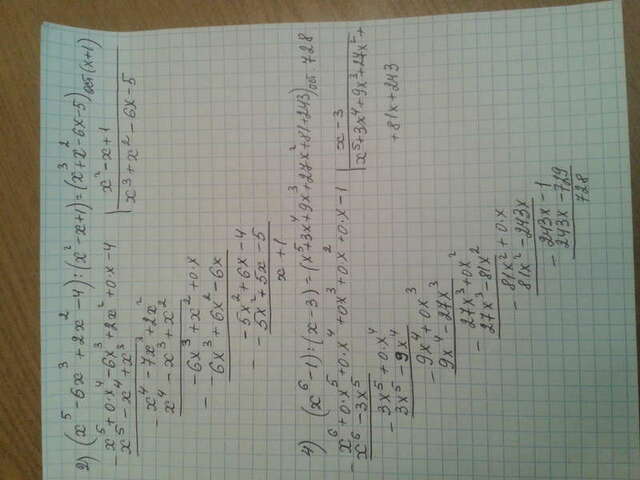 2) (x⁵ - 6x³ + 2x² - 4) : (x² - x + 1) = (x³ + x² - 6x - 5) ост (x+1)
- x⁵ + 0·x⁴ - 6x³ + 2x² + 0·x - 4 | x² - x + 1
x⁵ - x⁴ + x³ | x³ + x² - 6x - 5
- x⁴ - 7x³ + 2x²
x⁴ - x³ + x²
- -6x³ + x² + 0·x
-6x³ + 6x² - 6x
- -5x² + 6x - 4
-5x² + 5x - 5
x + 1
4) (x⁶ - 1) : (x - 3) = (x⁵ + 3x⁴ + 9x³ + 27x² + 81 + 243) ост. 728
- x⁶ + 0·x⁵ + 0·x⁴ + 0x³ + 0x² + 0·x - 1 | x - 3
x⁶ - 3x⁵ | x⁵ + 3x⁴ + 9x³ + 27x² +
+ 81x + 243
- 3x⁵ + 0·x⁴
3x⁵ - 9x⁴
- 9x⁴ + 0x³
9x⁴ - 27x³
- 27x³ + 0x²
27x³ - 81x²
- 81x² + 0·x
81x² - 243x
- 243x - 1
243x - 729
728